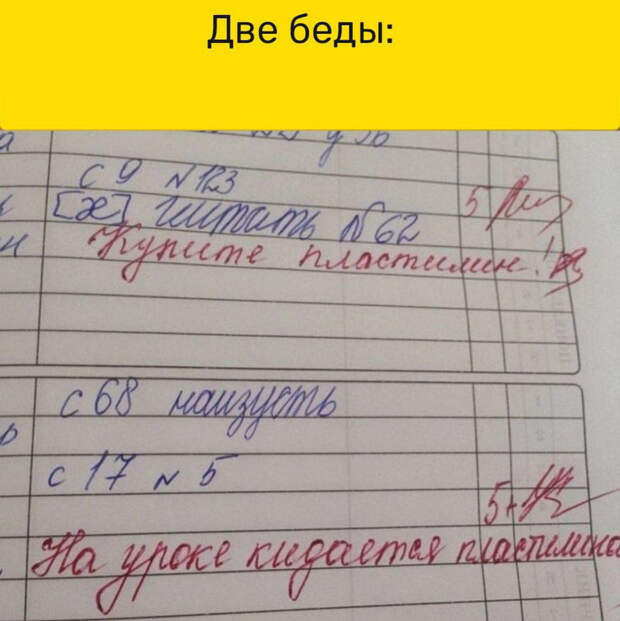 Две беды:
с 9 №123
[ж] читать №62
5
Купите пластилин!
с 68 наизусть
с 17 № 5
5+
На уроке кидается пластилино